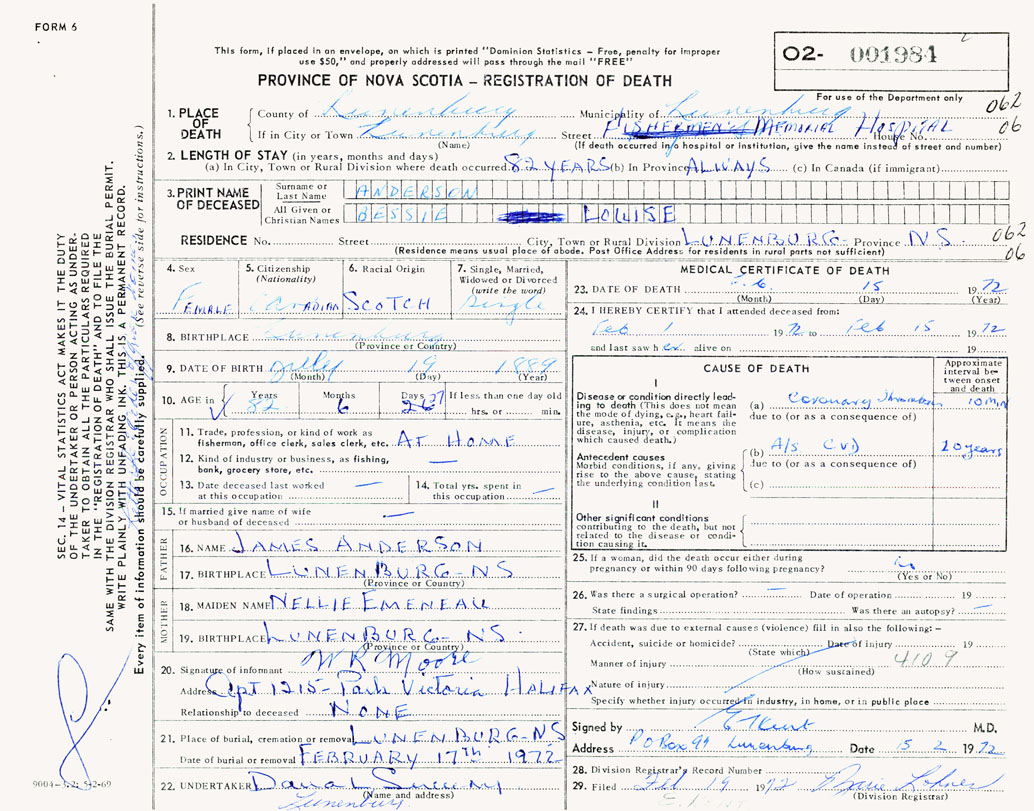 FORM 6
This form, if placed in an envelope, on which is printed "Dominion Statistics - Free, penalty for improper
use $50," and properly addressed will pass through the mail "FREE"
PROVINCE OF NOVA SCOTIA - REGISTRATION OF DEATH
02- 001984
For use of the Department only
062
06
1. PLACE OF DEATH
County of Lunenburg Municipality of Lunenburg
If in City or Town Lunenburg Street FISHERMEN'S MEMORIAL HOSPITAL House No.
(Name) (If death occurred in a hospital or institution, give the name instead of street and number)
2. LENGTH OF STAY (in years, months and days)
(a) In City, Town or Rural Division where death occurred 82 YEARS (b) In Province ALWAYS (c) In Canada (if immigrant)
3. PRINT NAME OF DECEASED
Surname or Last Name ANDERSON
All Given or Christian Names BESSIE LOUISE
RESIDENCE No. Street City, Town or Rural Division LUNENBURG Province N.S. 062
(Residence means usual place of abode. Post Office Address for residents in rural parts not sufficient) 06
4. Sex FEMALE
5. Citizenship (Nationality) CANADIAN
6. Racial Origin SCOTCH
7. Single, Married, Widowed or Divorced (write the word) Single
8. BIRTHPLACE Lunenburg
(Province or Country)
9. DATE OF BIRTH July 19 1889
(Month) (Day) (Year)
10. AGE in Years 82 Months 6 Days 27 If less than one day old
hrs. or min.
OCCUPATION
11. Trade, profession, or kind of work as
fisherman, office clerk, sales clerk, etc. AT HOME
12. Kind of industry or business, as fishing, —
bank, grocery store, etc.
13. Date deceased last worked —
at this occupation
14. Total yrs. spent in
this occupation —
15. If married give name of wife
or husband of deceased —
FATHER
16. NAME JAMES ANDERSON
17. BIRTHPLACE LUNENBURG-NS
(Province or Country)
MOTHER
18. MAIDEN NAME NELLIE EMENEAU
19. BIRTHPLACE LUNENBURG-NS.
(Province or Country)
20. Signature of informant W R Moore
Address Apt 1215-Park Victoria HALIFAX
Relationship to deceased NONE
21. Place of burial, cremation or removal LUNENBURG-NS
Date of burial or removal FEBRUARY 17th 1972
22. UNDERTAKER
(Name and address)
Lunenburg.
MEDICAL CERTIFICATE OF DEATH
23. DATE OF DEATH 15 1972
(Month) (Day) (Year)
24. I HEREBY CERTIFY that I attended deceased from:
Feb 1 1972 to Feb 15 1972
and last saw her alive on 19
CAUSE OF DEATH
Approximate interval between onset and death
I
Disease or condition directly lead-
ing to death (This does not mean
the mode of dying, e.g., heart fail-
ure, asthenia, etc. It means the
disease, injury, or complication
which caused death.)
(a) Coronary Thrombosis 10 Min
due to (or as a consequence of)
Antecedent causes
Morbid conditions, if any, giving
rise to the above cause, stating
the underlying condition last.
(b) A/S CVD 20 years
due to (or as a consequence of)
(c)
II
Other significant conditions
contributing to the death, but not
related to the disease or condi-
tion causing it.
25. If a woman, did the death occur either during
pregnancy or within 90 days following pregnancy? no
(Yes or No)
26. Was there a surgical operation? — Date of operation 19
State findings Was there an autopsy? —
27. If death was due to external causes (violence) fill in also the following: -
Accident, suicide or homicide? Date of injury 19
(State which)
Manner of injury 410 9
(How sustained)
Nature of injury
Specify whether injury occurred in industry, in home, or in public place
Signed by E Kent M.D.
Address P O Box 99 Lunenburg Date 15 2 1972
28. Division Registrar's Record Number
29. Filed Feb 19 1972
(Division Registrar)
SEC. 14 - VITAL STATISTICS ACT MAKES IT THE DUTY
OF THE UNDERTAKER OR PERSON ACTING AS UNDER-
TAKER TO OBTAIN ALL THE PARTICULARS REQUIRED
IN THE "REGISTRATION OF DEATH" AND TO FILE THE
SAME WITH THE DIVISION REGISTRAR WHO SHALL ISSUE THE BURIAL PERMIT.
WRITE PLAINLY WITH UNFADING INK. THIS IS A PERMANENT RECORD.
Every item of information should be carefully supplied. (See reverse side for instructions.)